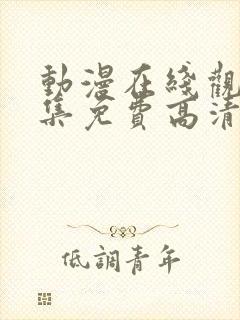 動漫在綫觀
集免費高清
低調青年